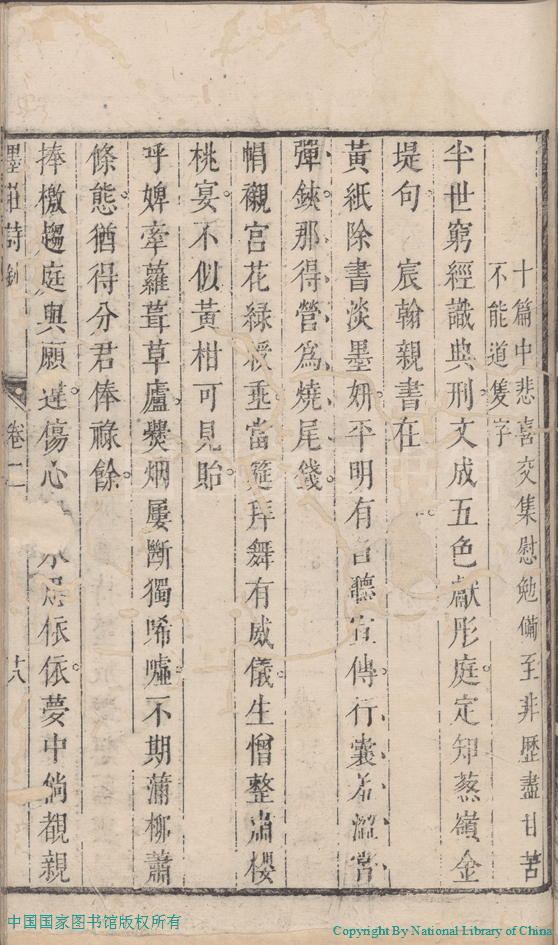 十篇中悲喜交集慰勉備至非歷盡甘苦
不能道隻字
半世窮經識典刑文成五色獻彤庭定知蔠嶺金
堤句 宸翰親書在
黃紙除書淡墨妍平明有 聽宣傳行囊 澀官
彈鋏那得營為燒尾錢
帽襯宮花綠綬垂當筵拜舞有威儀生憎整肅櫻
桃宴不似黃柑可見貽
呼婢牽蘿葺草廬爨烟屢斷獨唏噓不期蒲柳蕭
條態猶得分君俸祿餘
捧檄趨庭與願違傷心 依依夢中倘覩親
墨莊詩鈔 卷二 十八
中国国家图书馆版权所有
Copyright By National Library of China